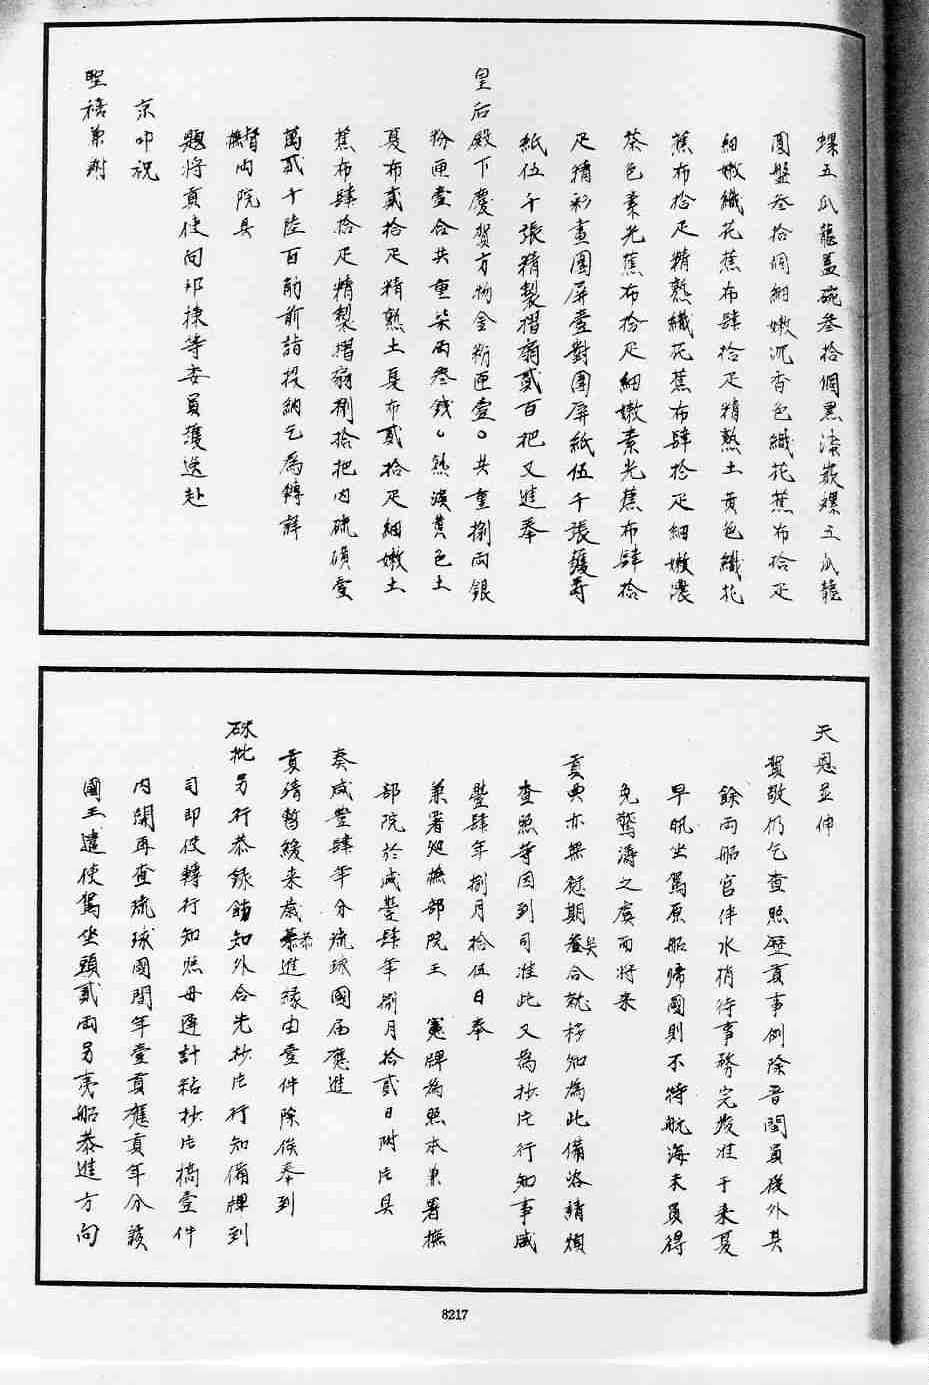 螺五爪龍蓋碗叁拾個黑漆嵌螺五爪龍
圓盤叁拾個細嫩沉香色織花蕉布拾疋
細嫩織花蕉布肆拾疋精熟土黃色織花
蕉布拾疋精熟織花蕉布肆拾疋細嫩濃
茶色素光蕉布拾疋細嫩素光蕉布肆拾
疋精彩畫圍屏壹對圍屏紙伍千張護壽
紙伍千張精製摺扇貳百把又進奉
皇后殿下慶賀方物金粉匣壹。共重捌兩銀
粉匣壹合共重柒兩叁錢。熟淡黃色土
夏布貳拾疋精熟土夏布貳拾疋細嫩土
蕉布肆拾疋精製摺扇捌拾把內硫磺壹
萬貳千陸百觔前詣投納乞爲轉詳
督撫兩院具
題將貢使向邦棟等委員護送赴
京叩祝
聖禧第謝
天恩並伸
賀敬仍乞查照歷貢事例除晋閩員役外其
餘兩船官伴水梢待事務完竣准于來夏
早汛坐駕原船歸國則不特航海末員得
免驚濤之虞而將來
貢典亦無愆期矣合就移知為此備洛請煩
查照等因到司准此又為抄片行知事咸
豐肆年捌月拾伍日奉
兼署廵撫部院王 憲牌為照本兼署撫
部院於咸豐肆年捌月拾貳日附片具
奏咸豐肆年分琉球國届應進
貢請暫緩來歲恭進緣由壹件除俟奉到
硃批另行恭錄飭知外合先抄片行知備牌到
司即使轉行知照毋遲計粘抄片稿壹件
內開再查琉球國間年壹貢應貢年分該
國王遣使駕坐頭貳兩号夷船恭進方向
8217